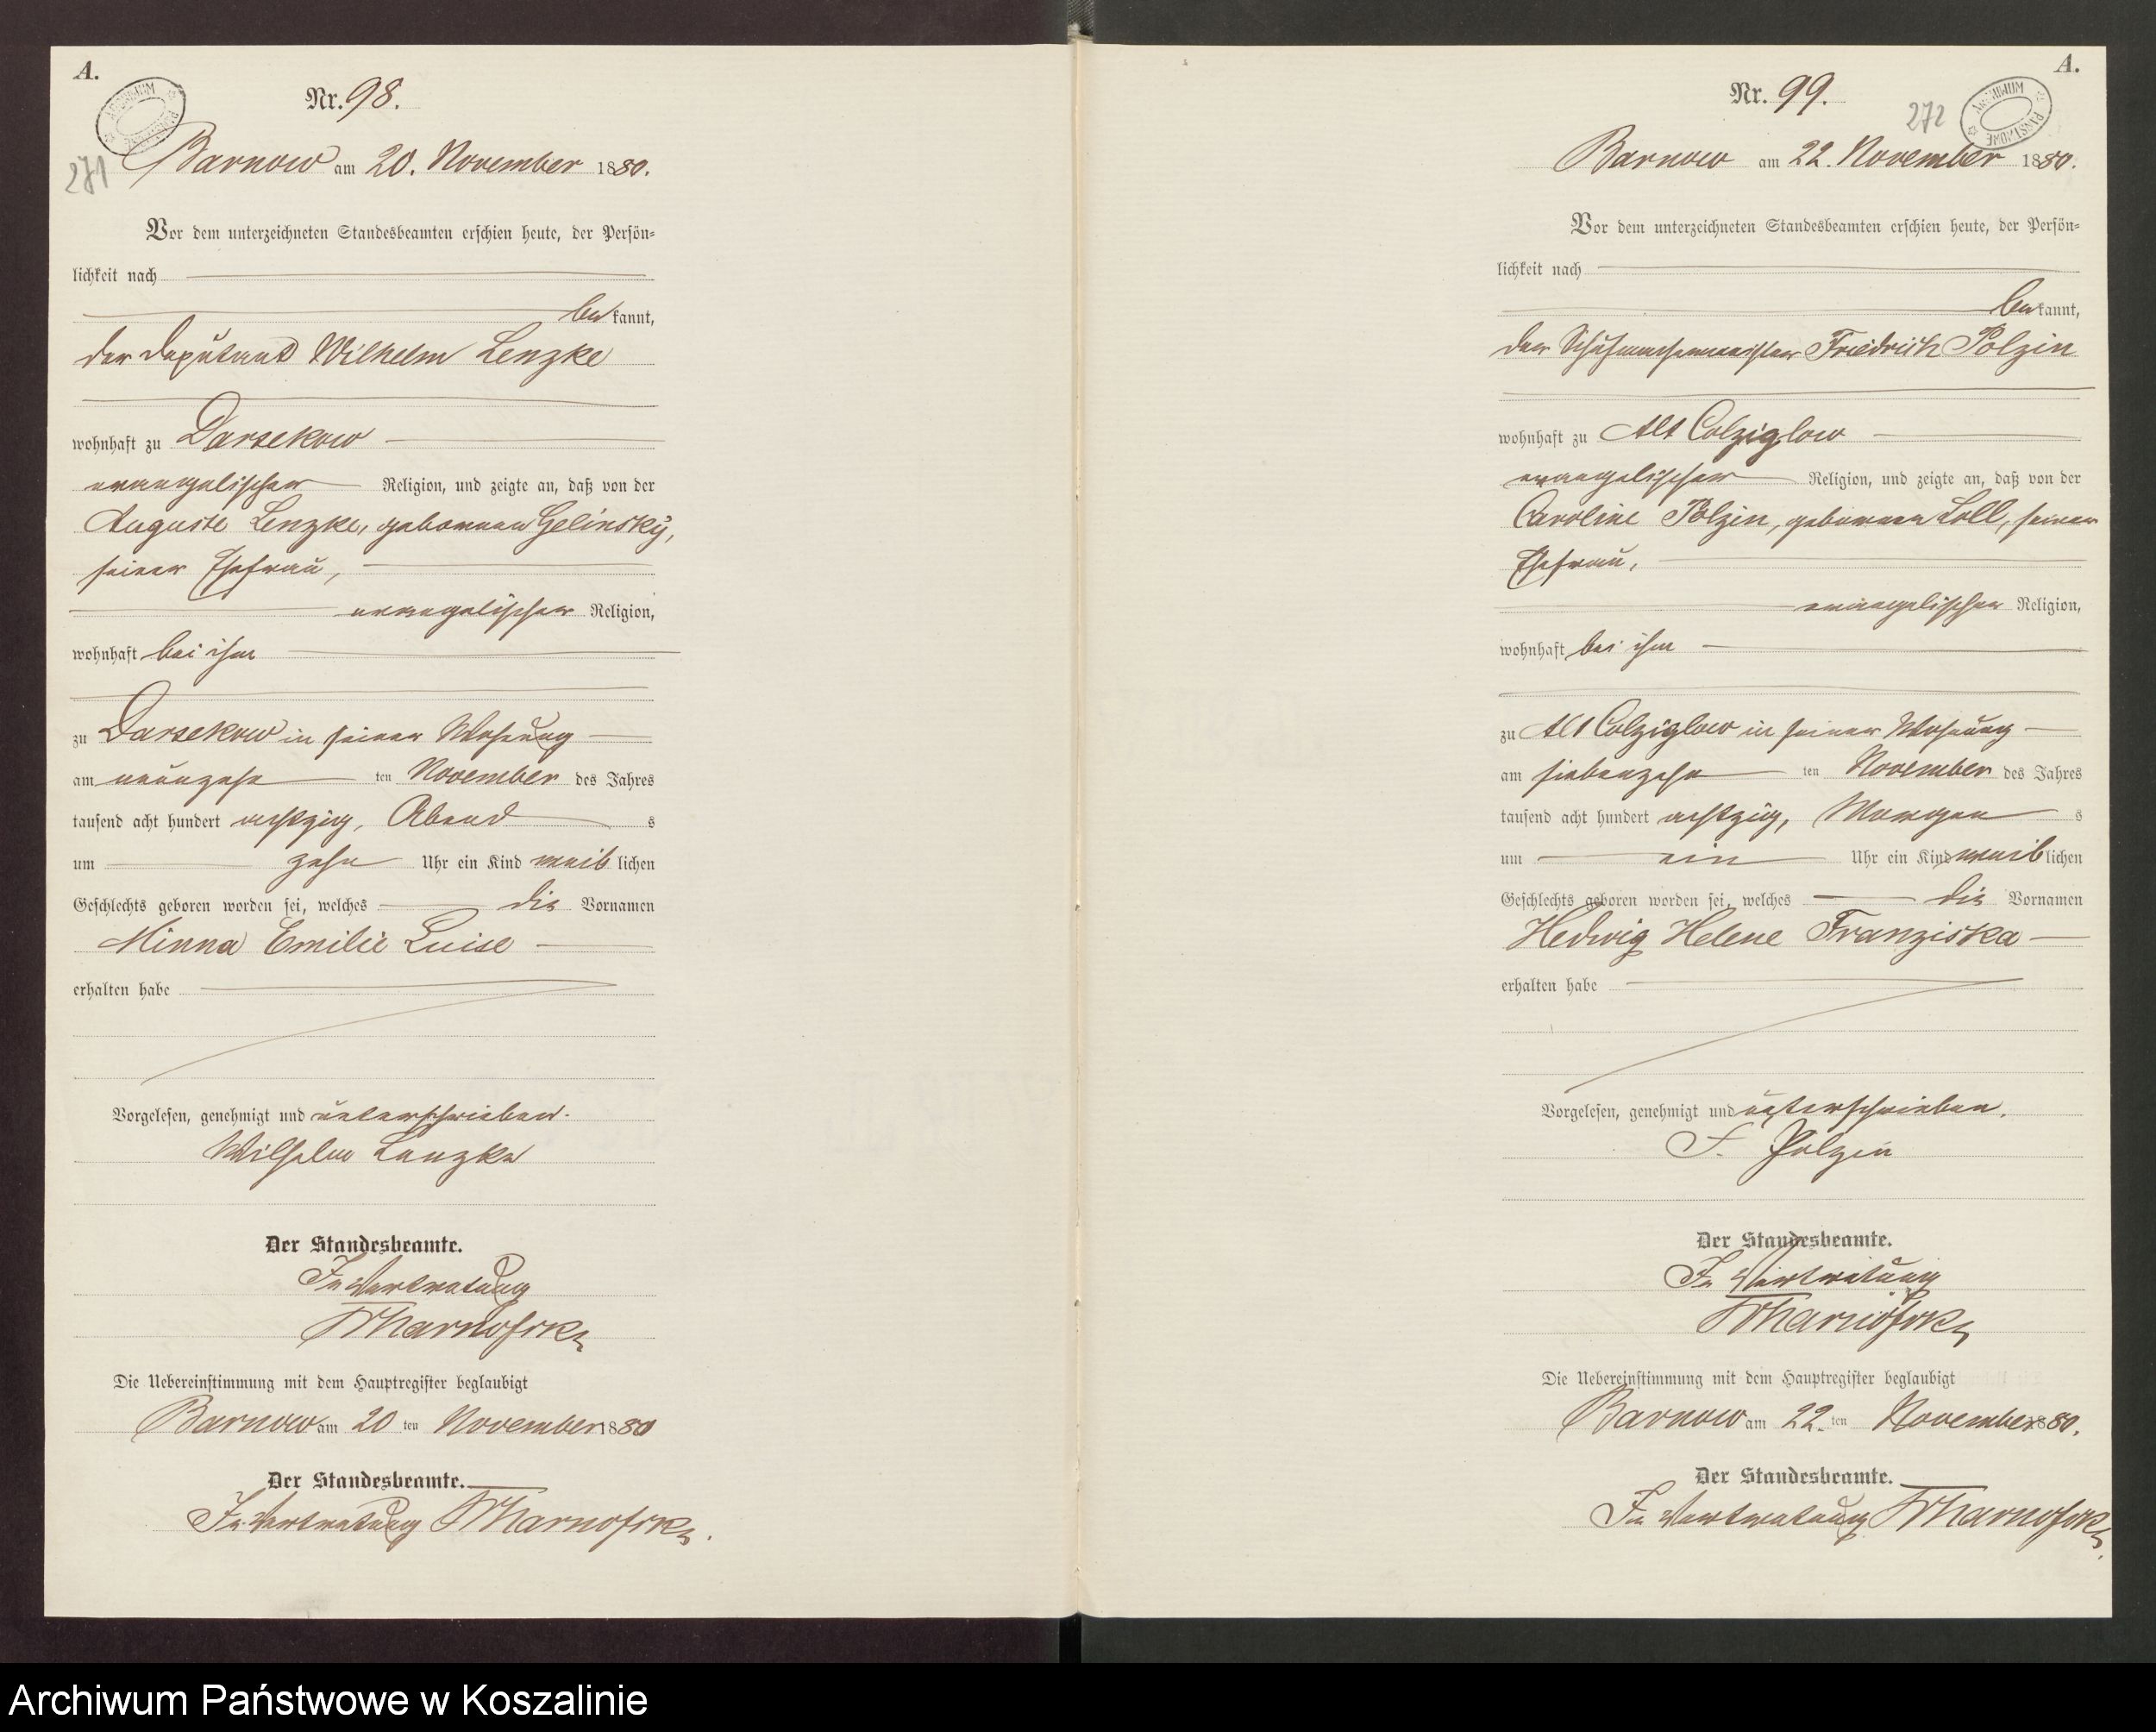 A.
Nr. 98.
ARCHIWUM PAŃSTWOWE
271
Barnow am 20. November 1880.
Vor dem unterzeichneten Standesbeamten erschien heute, der Persön-
lichkeit nach
bekannt,
der Deputant Wilhelm Lenzke
wohnhaft zu Darsekow
evangelischer Religion, und zeigte an, daß von der
Auguste Lenzke, geborenen Gelinsky,
seiner Ehefrau,
evangelischer Religion,
wohnhaft bei ihm
zu Darsekow in seiner Wohnung
am neunzehn ten November des Jahres
tausend acht hundert achtzig, Abend s
um zehn Uhr ein Kind weiblichen
Geschlechts geboren worden sei, welches die Vornamen
Minna Emilie Luise
erhalten habe
Vorgelesen, genehmigt und unterschrieben.
Wilhelm Lenzke
Der Standesbeamte.
In Vertretung
Die Uebereinstimmung mit dem Hauptregister beglaubigt
Barnow am 20 ten November 1880
Der Standesbeamte.
In Vertretung
A.
Nr. 99.
272
ARCHIWUM PAŃSTWOWE
Barnow am 22. November 1880.
Vor dem unterzeichneten Standesbeamten erschien heute, der Persön-
lichkeit nach
bekannt,
der Schuhmachermeister Friedrich Polzin
wohnhaft zu Alt Colziglow
evangelischer Religion, und zeigte an, daß von der
Caroline Polzin, geborenen Loll, seiner
Ehefrau,
evangelischer Religion,
wohnhaft bei ihm
zu Alt Colziglow in seiner Wohnung
am siebenzehn ten November des Jahres
tausend acht hundert achtzig, Morgen s
um ein Uhr ein Kind weiblichen
Geschlechts geboren worden sei, welches die Vornamen
Hedwig Helene Franziska
erhalten habe
Vorgelesen, genehmigt und unterschrieben.
F. Polzin
Der Standesbeamte.
In Vertretung
Die Uebereinstimmung mit dem Hauptregister beglaubigt
Barnow am 22. ten November 1880.
Der Standesbeamte.
In Vertretung
Archiwum Państwowe w Koszalinie